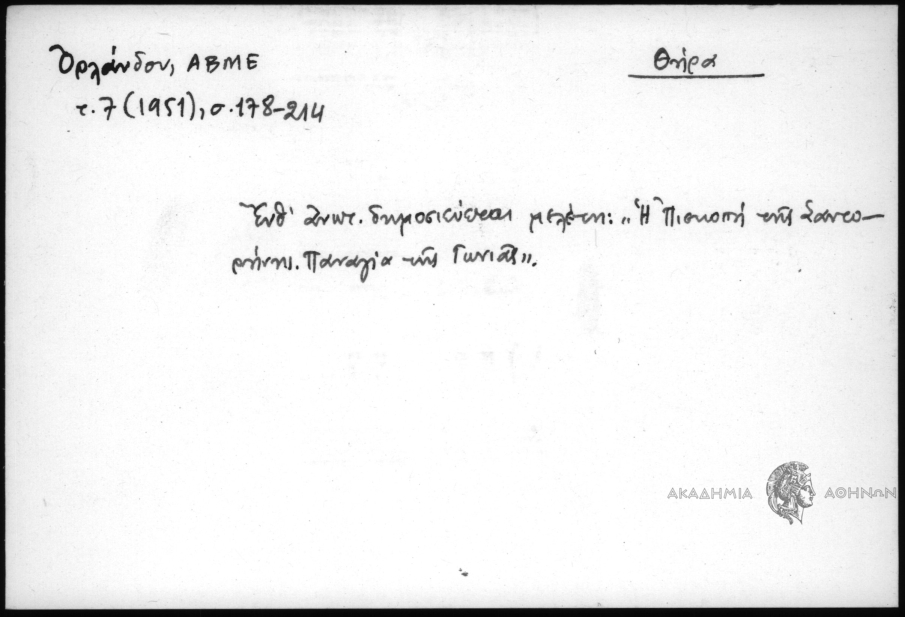 Ὀρλάνδου, ΑΒΜΕ
Θήρα
τ. 7 (1951), σ. 178-214
Ἔνθ' ἀνωτ. δημοσιεύεται μελέτη: „Ἡ Πισκοπή τῆς Σαντο-
ρήνης. Παναγία τῆς Γωνιᾶς".
ΑΚΑΔΗΜΙΑ ΑΘΗΝΩΝ